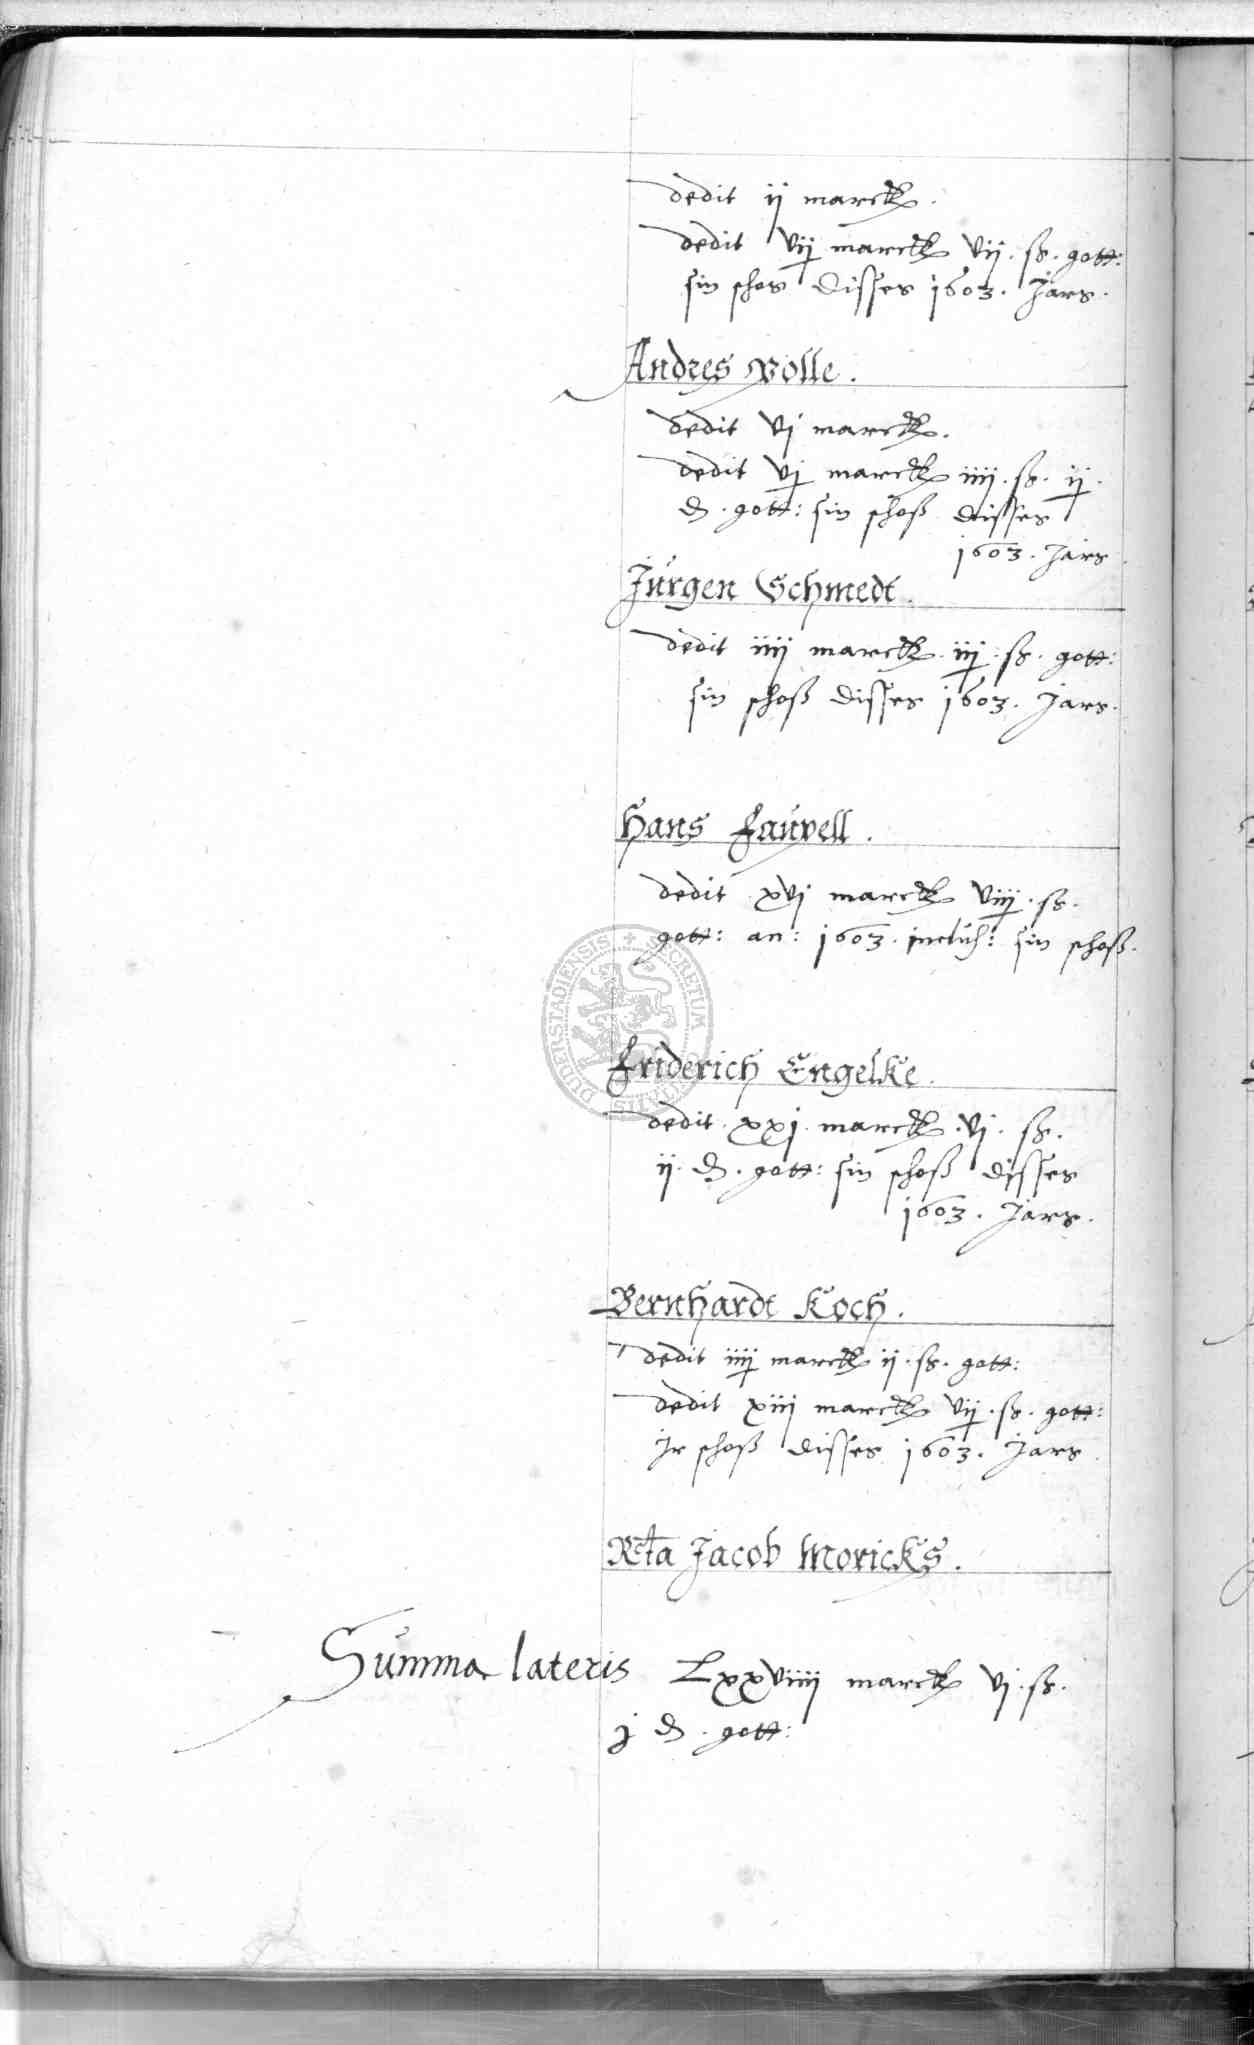 dedit ij marck.
dedit vij marck vij. ß. gott:
sin schos disses 1603. Jars.
Andres Volle.
dedit vj marck.
dedit vj marck iiij. ß. ij.
d. gott: sin schoß disses
1603. Jars
Jürgen Schmedt.
dedit iiij marck. iij. ß. gott:
sin schoß disses 1603. Jars.
Hans Fauvell.
dedit xvj marck viij. ß.
gott: an: 1603. sin schoß.
DUDERSTADIENSIS + SECRETUM
Friderich Engelke.
dedit. xxj. marck. vj. ß.
ij. d. gott: sin schoß disses
1603. Jars.
Bernhardt Koch.
dedit iiij marck ij. ß. gott:
dedit xiij marck vij. ß. gott:
Jr schoß disses 1603. Jars.
Rcta Jacob Moricks.
Summa lateris Lxxviiij marck vj. ß.
j d. gott: